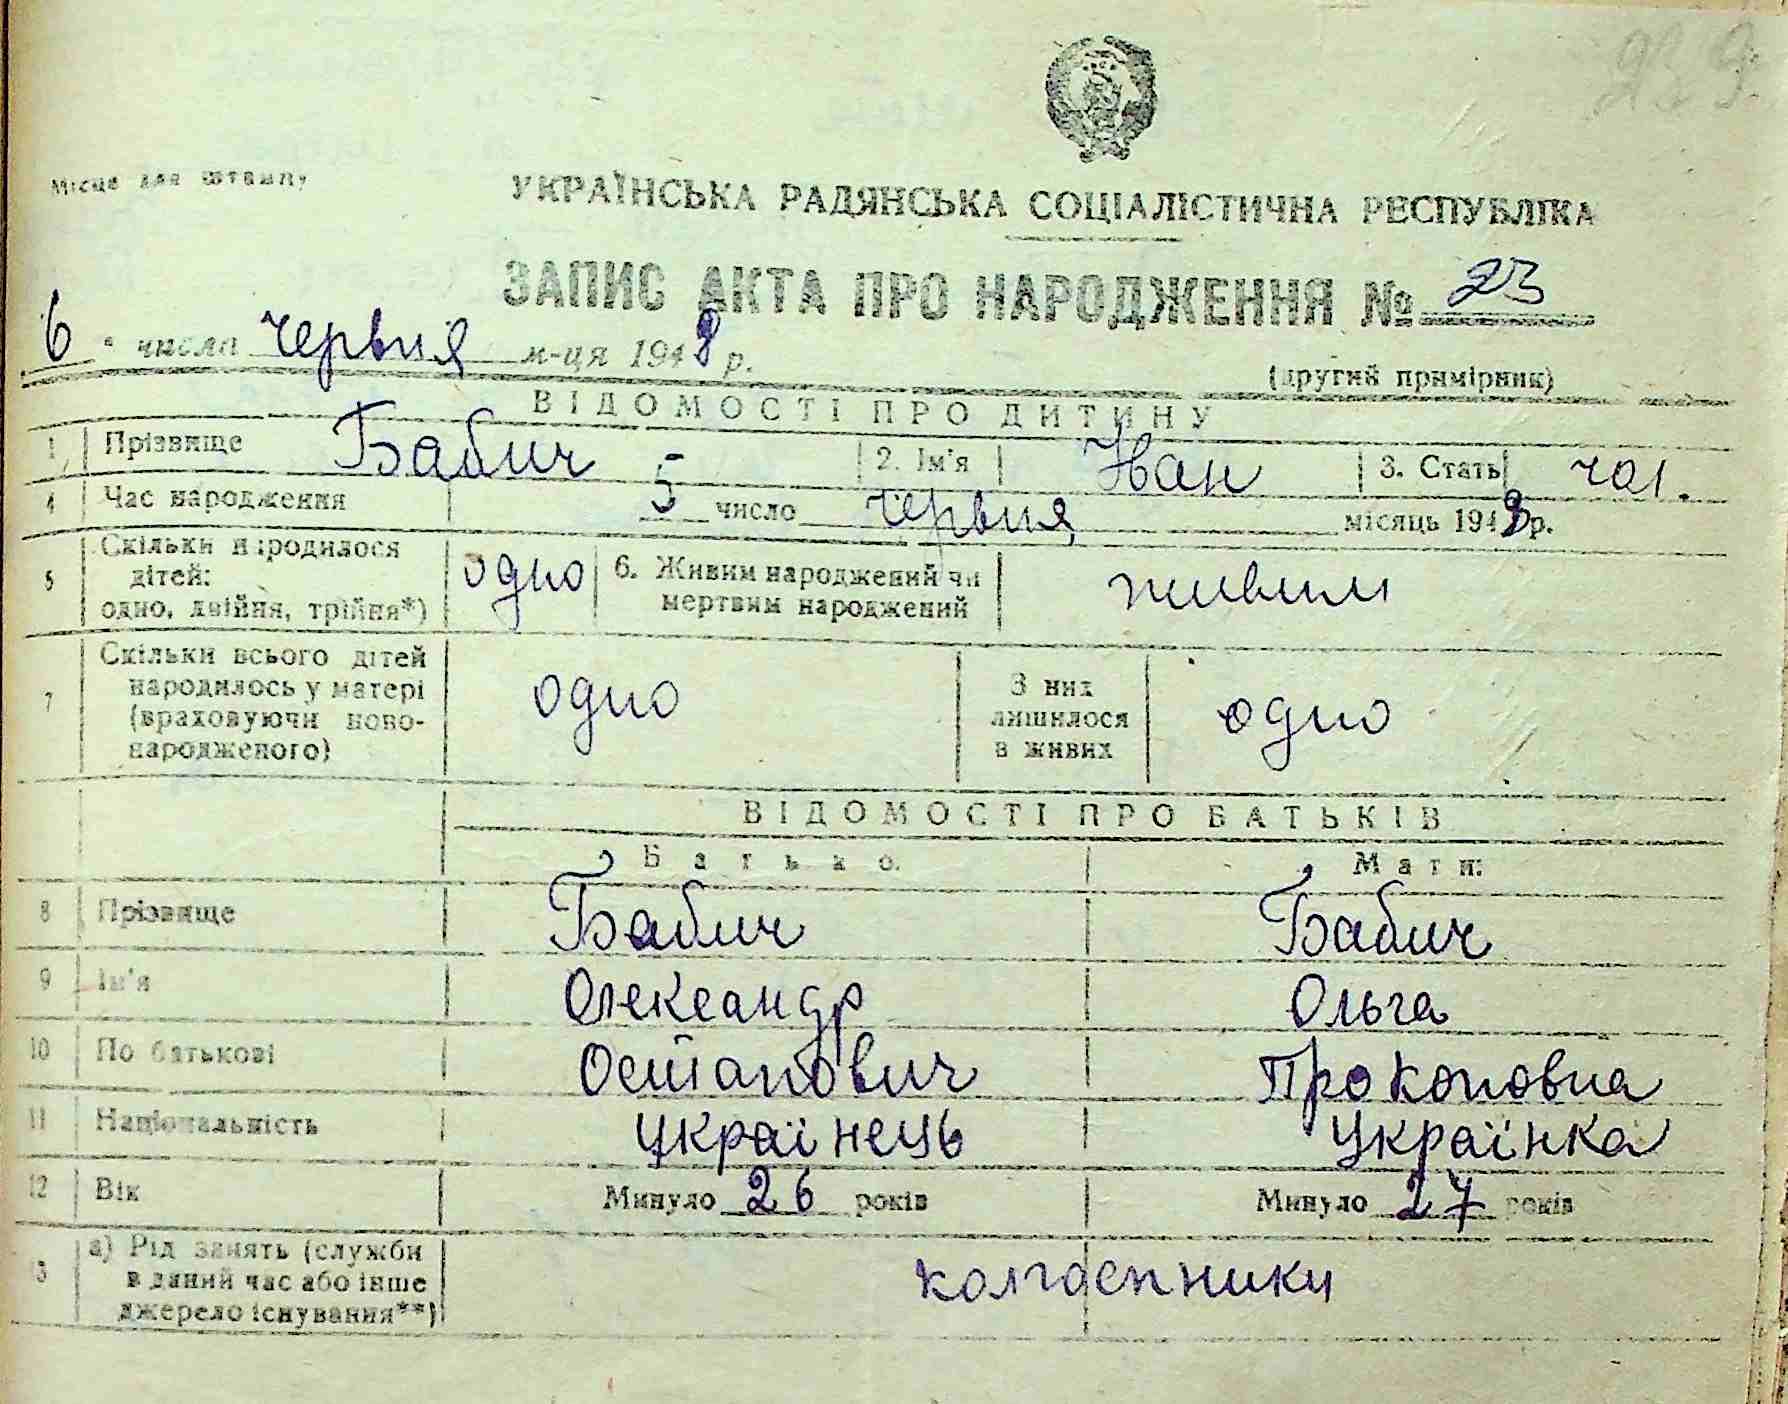 239
Місце для штампу
УКРАЇНСЬКА РАДЯНСЬКА СОЦІАЛІСТИЧНА РЕСПУБЛІКА
ЗАПИС АКТА ПРО НАРОДЖЕННЯ № 23
6 " числа червня м-ця 1948 р.
(другий примірник)
ВІДОМОСТІ ПРО ДИТИНУ
1 Прізвище Бабич 2. Ім'я Іван 3. Стать чол.
4 Час народження 5 число червня місяць 1948 р.
5 Скільки народилося дітей: одно, двійня, трійня*) одно 6. Живим народжений чи мертвим народжений живим
7 Скільки всього дітей народилось у матері (враховуючи новонародженого) одно З них лишилося в живих одно
ВІДОМОСТІ ПРО БАТЬКІВ
Батько: Мати:
8 Прізвище Бабич Бабич
9 Ім'я Олександр Ольга
10 По батькові Остапович Прокоповна
11 Національність українець українка
12 Вік Минуло 26 років Минуло 27 років
13 а) Рід занять (служби в даний час або інше джерело існування**) колгоспники